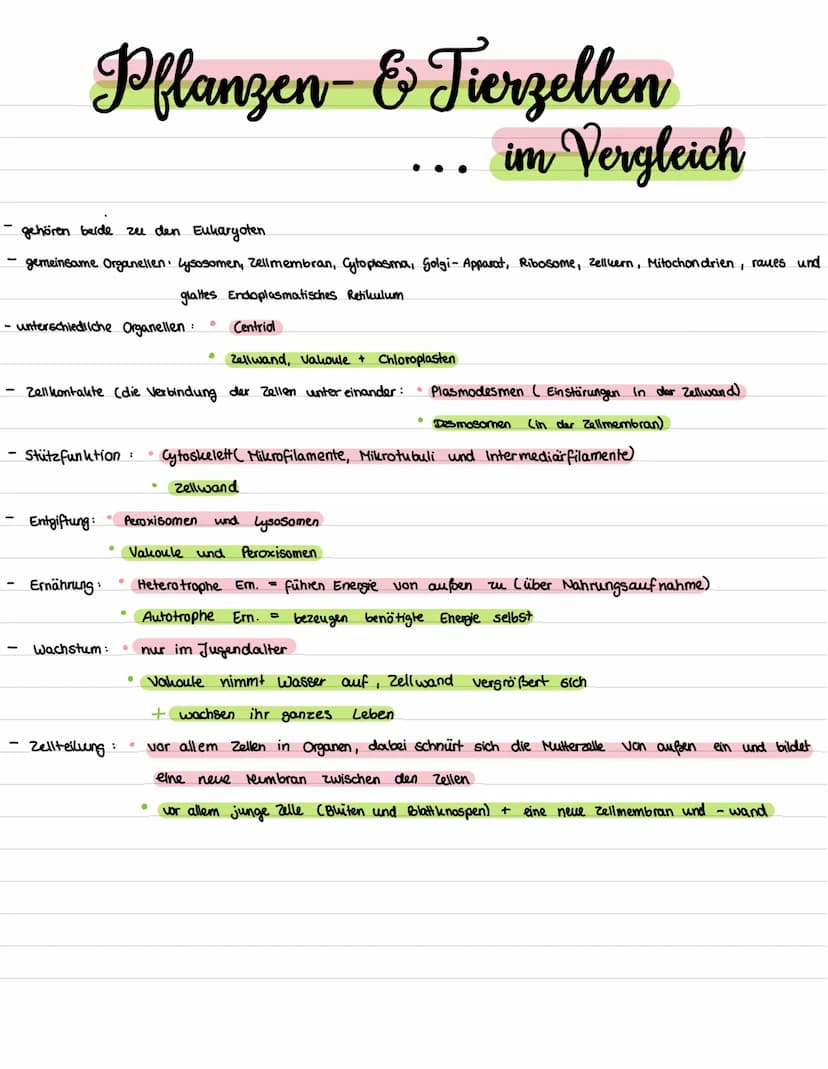 Pflanzen- & Tierzellen
... im Vergleich
- gehören beide zu den Eukaryoten
- gemeinsame Organellen: Lysosomen, Zellmembran, Cytoplasma, Golgi-Apparat, Ribosome, Zellkern, Mitochondrien, raues und
glattes Endoplasmatisches Retikulum
- unterschiedliche Organellen: • Centriol
• Zellwand, Vakuole + Chloroplasten
- Zellkontakte (die Verbindung der Zellen untereinander: • Plasmodesmen (Einstärungen in der Zellwand)
• Desmosomen (in der Zellmembran)
- Stützfunktion: • Cytoskelett (Mikrofilamente, Mikrotubuli und Intermediärfilamente)
• Zellwand
- Entgiftung: • Peroxisomen und Lysosomen
• Vakoule und Peroxisomen
- Ernährung: • Heterotrophe Ern. = führen Energie von außen zu (über Nahrungsaufnahme)
• Autotrophe Ern. = bezeugen benötigte Energie selbst
- Wachstum: • nur im Jugendalter
• Vakoule nimmt Wasser auf, Zellwand vergrößert sich
+ wachsen ihr ganzes Leben
- Zellteilung: • vor allem Zellen in Organen, dabei schnürt sich die Mutterzelle von außen ein und bildet
eine neue Membran zwischen den Zellen
• vor allem junge Zelle (Blüten und Blattknospen) + eine neue Zellmembran und -wand